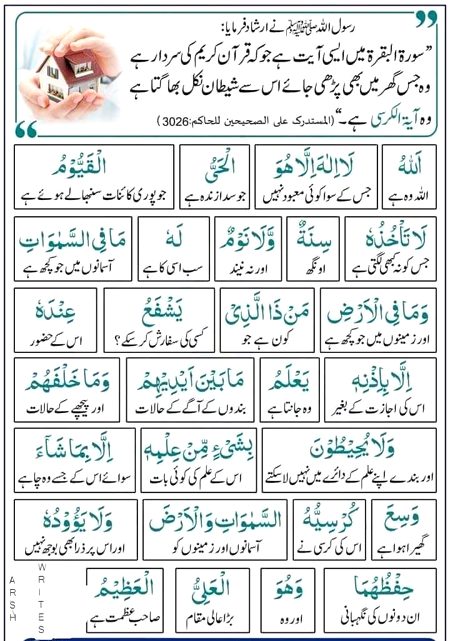 رسول اللہ ﷺ نے ارشاد فرمایا:
”سورۃ البقرۃ میں ایسی آیت ہے جو کہ قرآن کریم کی سردار ہے
وہ جس گھر میں بھی پڑھی جائے اس سے شیطان نکل بھاگتا ہے
وہ آیۃ الکرسی ہے۔“ (المستدرک علی الصحیحین للحاکم:3026)
اَللّٰهُ لَاۤ اِلٰهَ اِلَّا هُوَ اَلْحَیُّ الْقَیُّوْمُ
اللہ وہ ہے جس کے سوا کوئی معبود نہیں جو سدا زندہ ہے جو پوری کائنات سنبھالے ہوئے ہے
لَا تَاْخُذُهٗ سِنَةٌ وَّلَا نَوْمٌ لَهٗ مَا فِی السَّمٰوَاتِ
جس کو نہ کبھی لگتی ہے اونگھ اور نہ نیند سب اسی کا ہے آسمانوں میں جو کچھ ہے
وَمَا فِی الْاَرْضِ مَنْ ذَا الَّذِیْ یَشْفَعُ عِنْدَهٗ
اور زمینوں میں جو کچھ ہے کون ہے جو کسی کی سفارش کر سکے؟ اس کے حضور
اِلَّا بِاِذْنِهٖ یَعْلَمُ مَا بَیْنَ اَیْدِیْهِمْ وَمَا خَلْفَهُمْ
اس کی اجازت کے بغیر وہ جانتا ہے بندوں کے آگے کے حالات اور پیچھے کے حالات
وَلَا یُحِیْطُوْنَ بِشَیْءٍ مِّنْ عِلْمِهٖ اِلَّا بِمَا شَآءَ
اور بندے اپنے علم کے دائرے میں نہیں لا سکتے اس کے علم کی کوئی بات سوائے اس کے جسے وہ چاہے
وَسِعَ کُرْسِیُّهُ السَّمٰوَاتِ وَالْاَرْضَ وَلَا یَؤُوْدُهٗ
گھیرا ہوا ہے اس کی کرسی نے آسمانوں اور زمینوں کو اور اس پر ذرا بھی بوجھ نہیں
حِفْظُهُمَا وَهُوَ الْعَلِیُّ الْعَظِیْمُ
ان دونوں کی نگہبانی اور وہ بڑا عالی مقام صاحب عظمت ہے
ARSH
WRITES